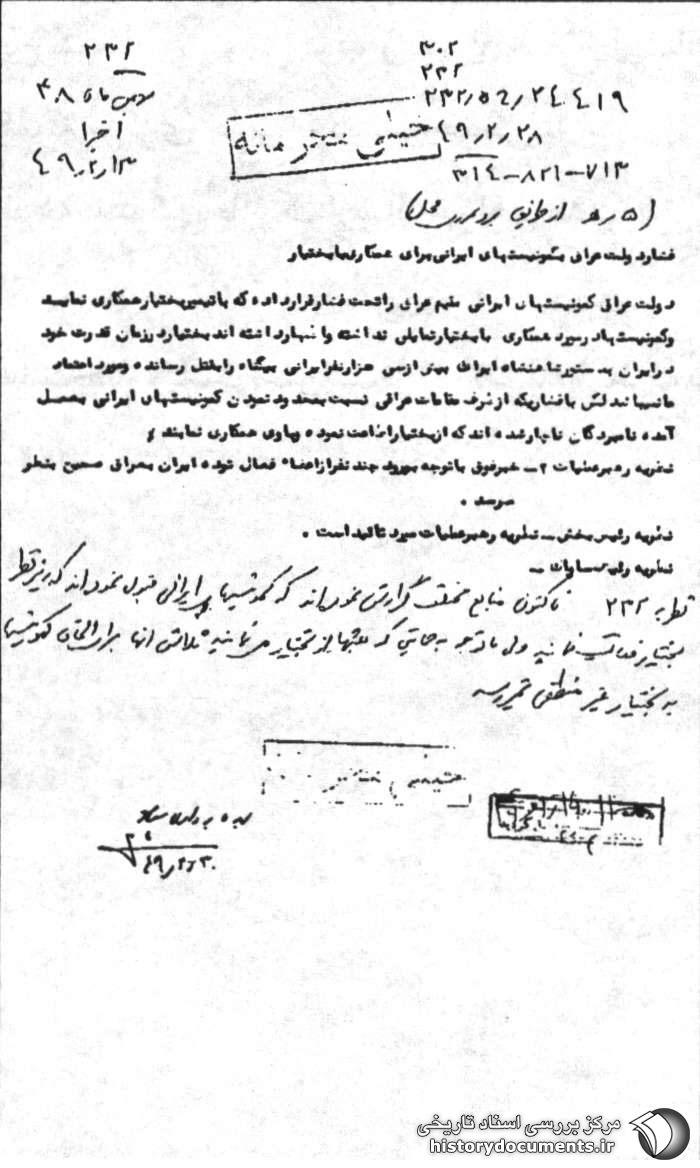 ۲۳۲
بهمن ماه ۴۸
اخیرا
۴۹/۲/۱۳
۳۰۲
۲۳۲
۲۳۲/۵۶/۲۴۴۱۹
۴۹/۲/۲۸
۳۱۴-۸۲۱-۷۱۳
خیلی محرمانه
فشار دولت عراق بکمونیستهای ایرانی برای همکاری با بختیار
دولت عراق کمونیستهای ایرانی مقیم عراق را تحت فشار قرار داده که با تیمور بختیار همکاری نمایند
وکمونیستها در مورد همکاری با بختیار تمایلی نداشته و اظهار داشته اند بختیار در زمان قدرت خود
در ایران بدستور شاهنشاه ایران بیش از سی هزار نفر ایرانی بیگناه را بقتل رسانده ومورد اعتماد
نمیباشد لکن با فشاریکه از طرف مقامات عراقی نسبت بمحدود نمودن کمونیستهای ایرانی بعمل
آمده نامبردگان ناچار شده اند که از بختیار اطاعت نموده وباوی همکاری نمایند
نظریه رهبر عملیات ۲ـ خبر فوق با توجه بورود چند نفر از اعضاء فعال توده ایران بعراق صحیح بنظر
میرسد .
نظریه رئیس بخش ـ نظریه رهبر عملیات مورد تائید است .
نظریه رئیس ساواک ـ
نظریه ۲۳۲ تاکنون منابع مختلف گزارش نموده اند که کمونیستهای ایرانی قبول نموده اند که زیر نظر
بختیار فعالیت نمایند ولی با توجه به حمایتی که از بختیار می نمایند تلاش آنها برای الحاق کمونیستها
به بختیار غیر منطقی بنظر نمیرسد
خیلی محرمانه
۴۹/۲/۳۰
مرکز بررسی اسناد تاریخی
historydocuments.ir